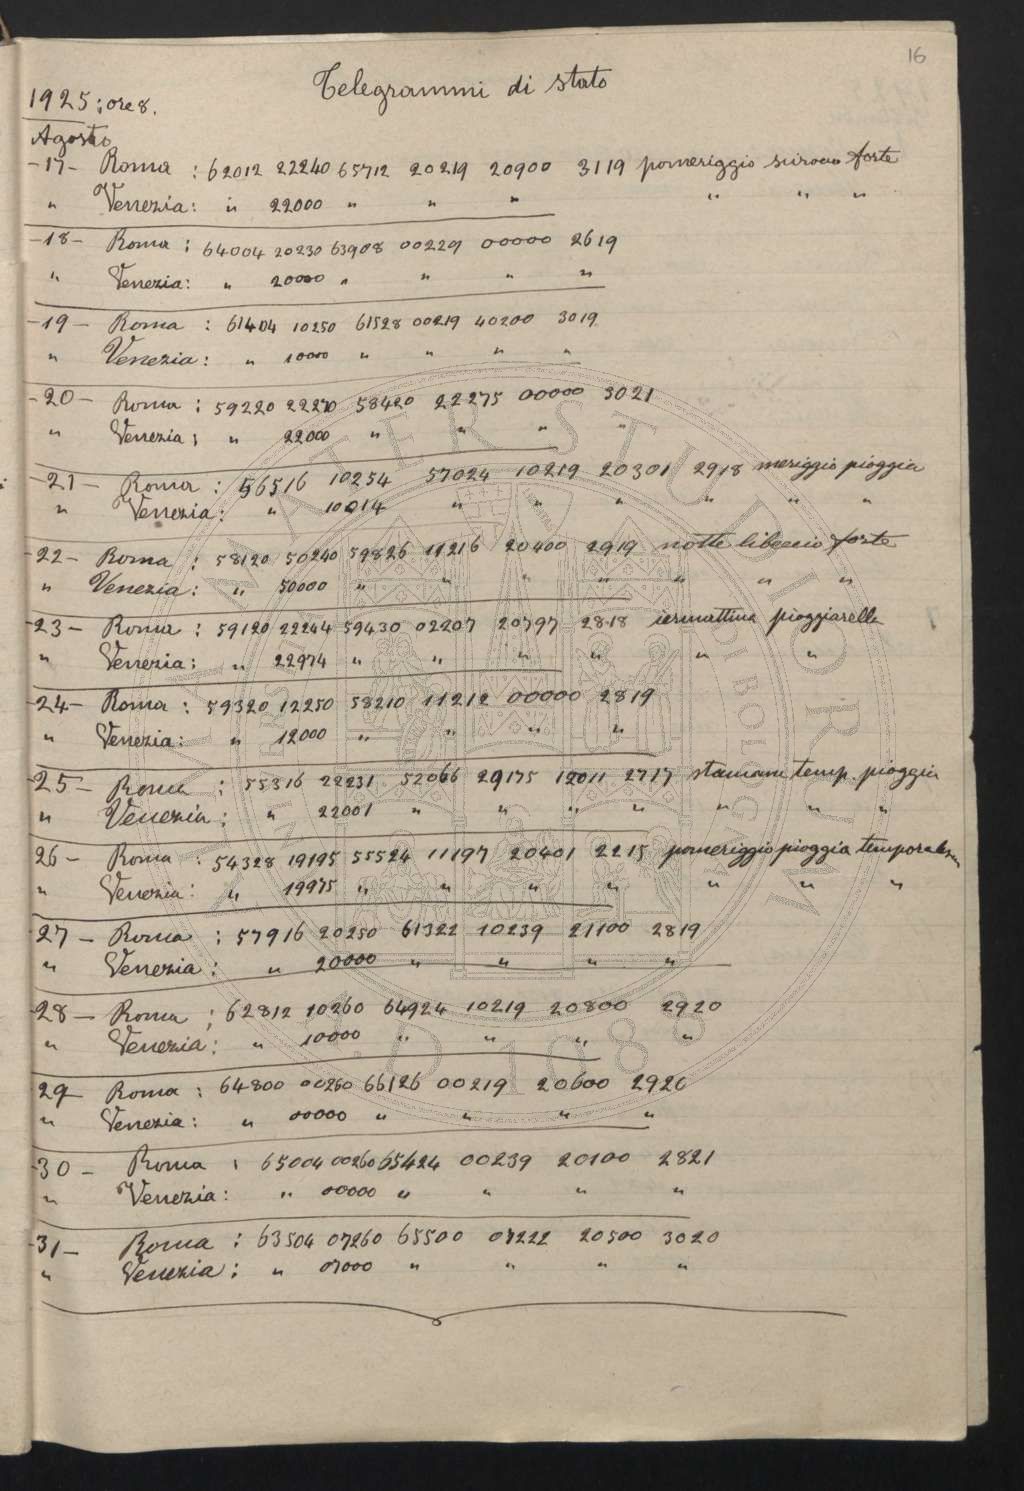 16
Telegrammi di stato
1925 : ore 8.
Agosto
-17- Roma : 62012 22240 65712 20219 20900 3119 pomeriggio sirocco forte
" Venezia : " 22000 " " " " " "
-18- Roma : 64004 20230 63908 00229 00000 2619
" Venezia : " 20000 " " " "
-19- Roma : 61404 10250 61528 00219 40200 3019
" Venezia : " 10000 " " " "
-20- Roma : 59220 22270 58420 22275 00000 3021
" Venezia ; " 22000 " " " "
-21- Roma : 56516 10254 57024 10219 20301 2918 meriggio pioggia
" Venezia : " 10014 " " " " " "
-22- Roma : 58120 50240 59826 11216 20400 2919 notte libeccio forte
" Venezia : " 50000 " " " " " "
-23- Roma : 59120 22244 59430 02207 20797 2818 iermattina pioggiarella
" Venezia : " 22974 " " " " " "
-24- Roma : 59320 12250 58210 11212 00000 2819
" Venezia : " 12000 " " " "
-25- Roma : 55316 22231 52066 29175 12011 2717 stamane temp. pioggia
" Venezia : " 22001 " " " " " " "
26- Roma : 54328 19195 55524 11197 20401 2215 pomeriggio pioggia
" Venezia : " 19975 " " " " " " "
27- Roma : 57916 20250 61322 10239 21100 2819
" Venezia : " 20000 " " " "
28- Roma : 62812 10260 64924 10219 20800 2920
" Venezia : " 10000 " " " "
29- Roma : 64800 00260 66126 00219 20600 2920
" Venezia : " 00000 " " " "
-30- Roma : 65004 00260 65424 00239 20100 2821
" Venezia : " 00000 " " " "
-31- Roma : 63504 07260 65500 07222 20500 3020
" Venezia : " 07000 " " " "
ALMA MATER STUDIORUM
A.D. 1088